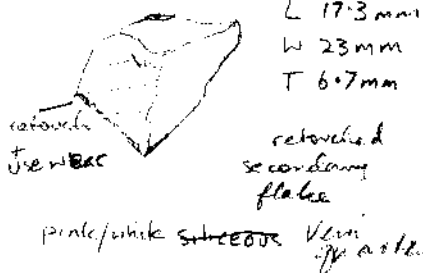 L 17.3 mm
W 23 mm
T 6.7 mm
retouch
+
use wear
retouched
secondary
flake
pink/white siliceous Vein
quartz